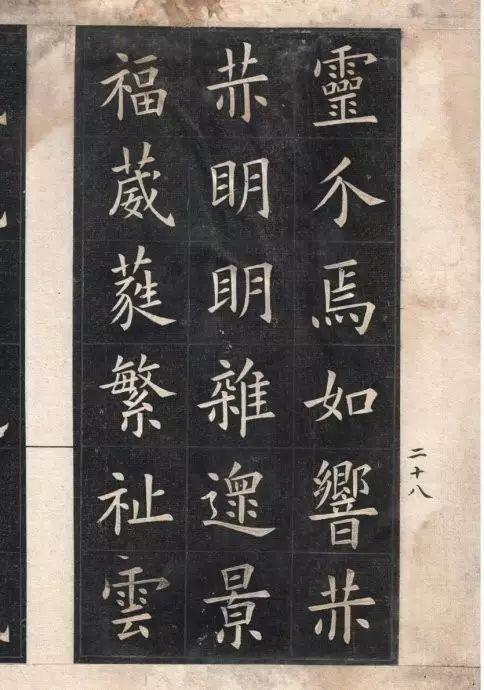 靈介焉如響赫
赫明明雜遝景
福葳蕤繁祉雲
二十八